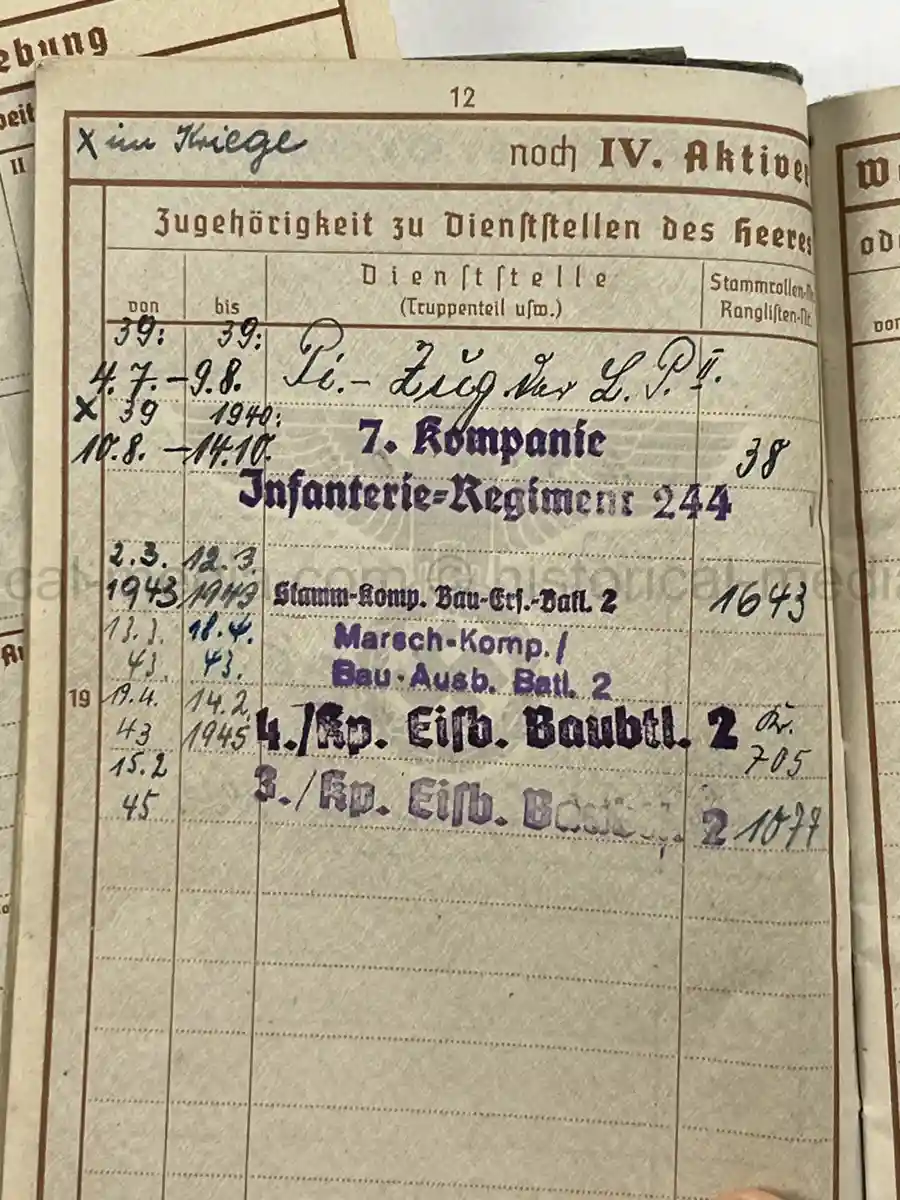 ebung
beit
II
12
x im Kriege
noch IV. Aktiver
Zugehörigkeit zu Dienststellen des Heeres
von
bis
Dienststelle
(Truppenteil usw.)
Stammrollen-Nr.
Ranglisten-Nr.
39: 39:
4.7. – 9.8. Pi.-Zug der L. P. II.
x 39 1940:
10.8. – 14.10. 7. Kompanie 38
Infanterie-Regiment 244
2.3. 12.3.
1943 1943 Stamm-Komp. Bau-Ers.-Batl. 2 1643
13.3. 18.4. Marsch-Komp./
43. 43. Bau-Ausb. Batl. 2
19 19.4. 14.2.
43 1945 4./Kp. Eisb. Baubtl. 2 705
15.2
45 3./Kp. Eisb. Baubtl. 2 1077
od
von